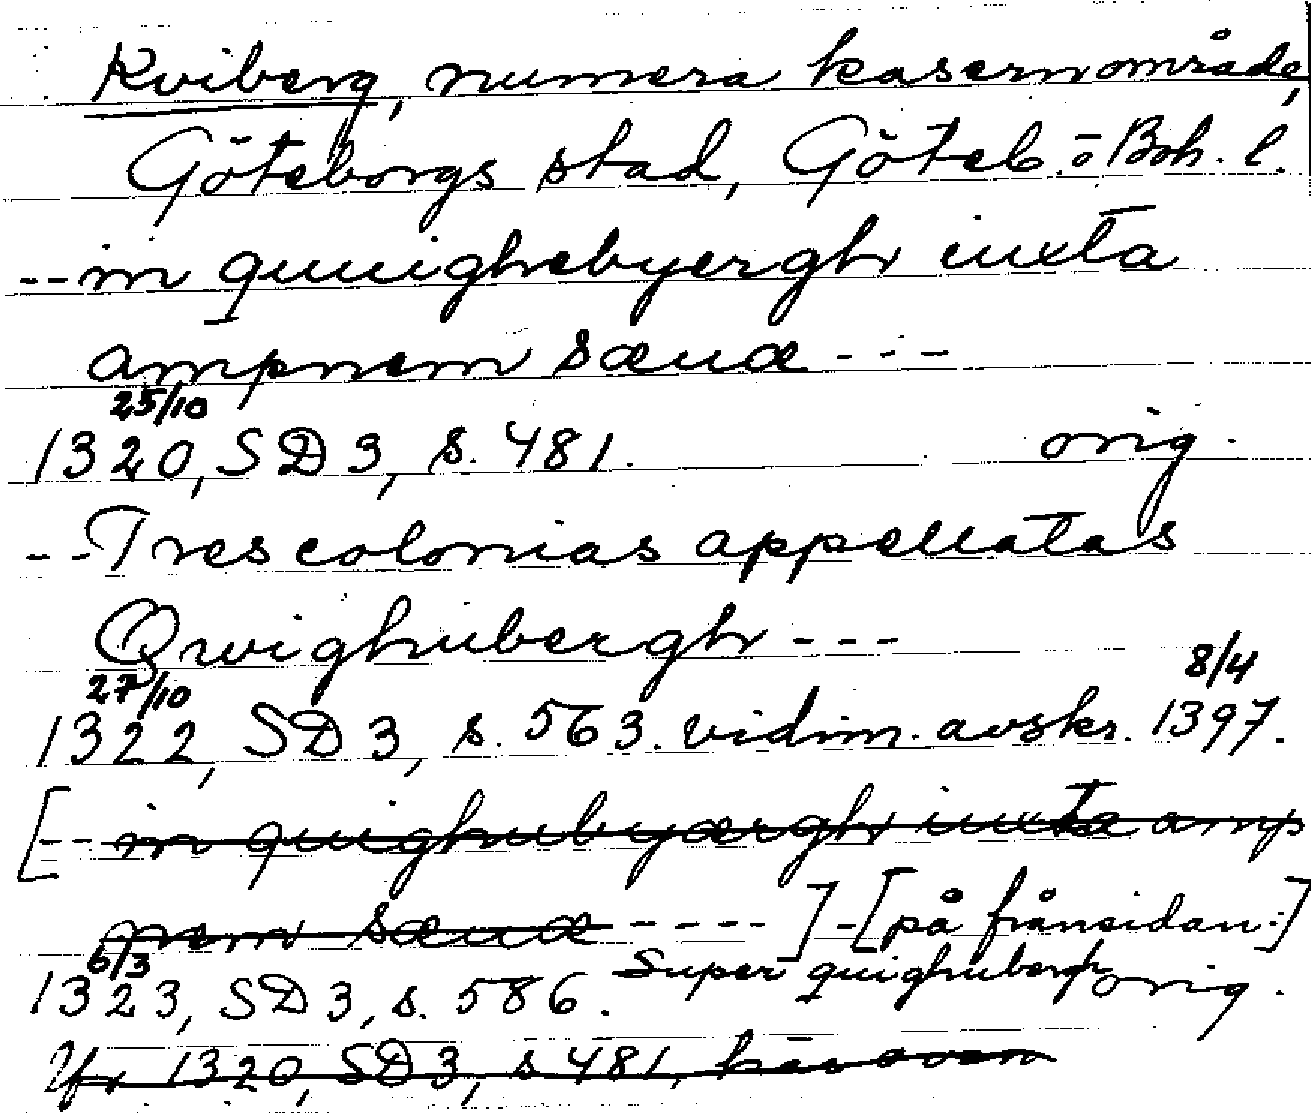 Kviberg, numera kasernområde,
Göteborgs stad, Göteb. o Boh. l.
-- in quuighebyergh iuxta
ampnem sæuæ ---
25/10
1320, SD 3, s. 481. orig.
-- Tres colonias appellatas
Qwighubergh ---
27/10 8/4
1322, SD 3, s. 563. vidim. avskr. 1397.
[-- in quighubyærgh iuxta amp
nem sæuæ ----] - [på frånsidan:]
6/3 Super quighubergh
1323, SD 3, s. 586. orig.
Jfr 1320, SD 3, s 481, här ovan